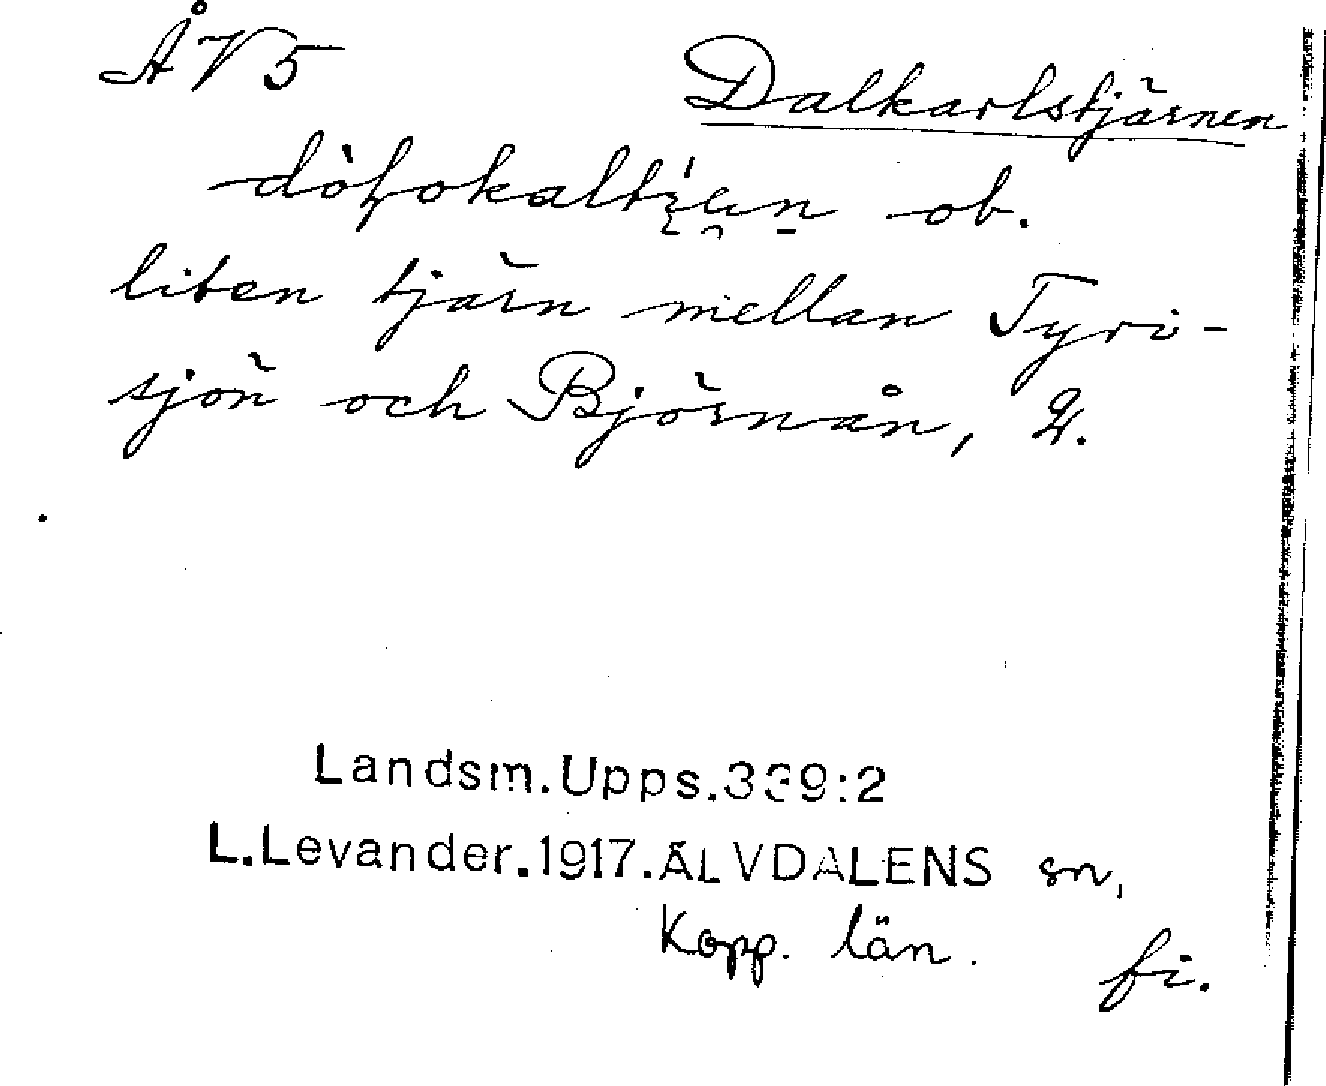 ÅV5
Dalkarlstjärnen
ob.
liten tjärn mellan Tyri-
sjön och Björnån, 2.
Landsm.Upps.339:2
L.Levander.1917.ÄLVDALENS sn,
Kopp. län.
fi.